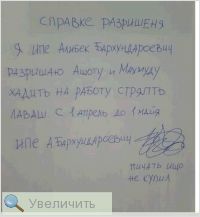 СПРАВКЕ РАЗРИШЕНЯ
Я ИПЕ АЛИБЕК БАРХУНДАРОЕВИЧ
РАЗРИШАЮ АШОТУ И МАХМУДУ
ХАДИТЬ НА РАБОТУ СТРЯПТЬ
ЛАВАШ С 1 АПРЕЛЬ ДО 1 МАЙЯ
ИПЕ А БАРХУНДАРОЕВИЧ
ПИЧАТЬ ИЩО
НЕ КУПИЛ
Увеличить